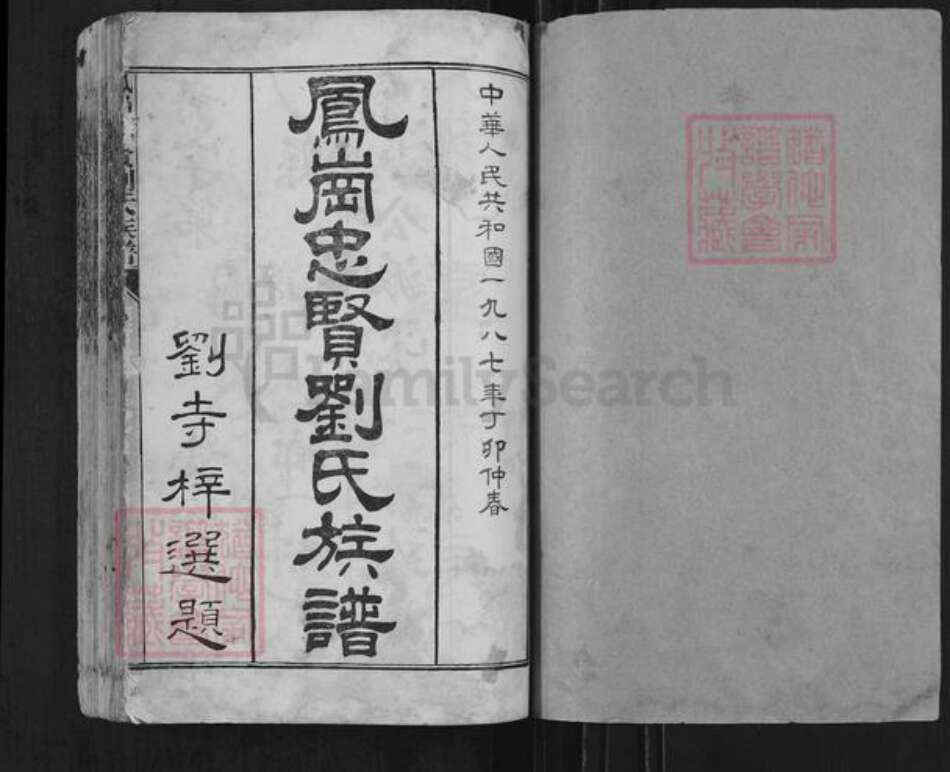 中華人民共和國一九八七年丁卯仲春
鳳崗忠賢劉氏族譜
劉寺梓選題
FamilySearch